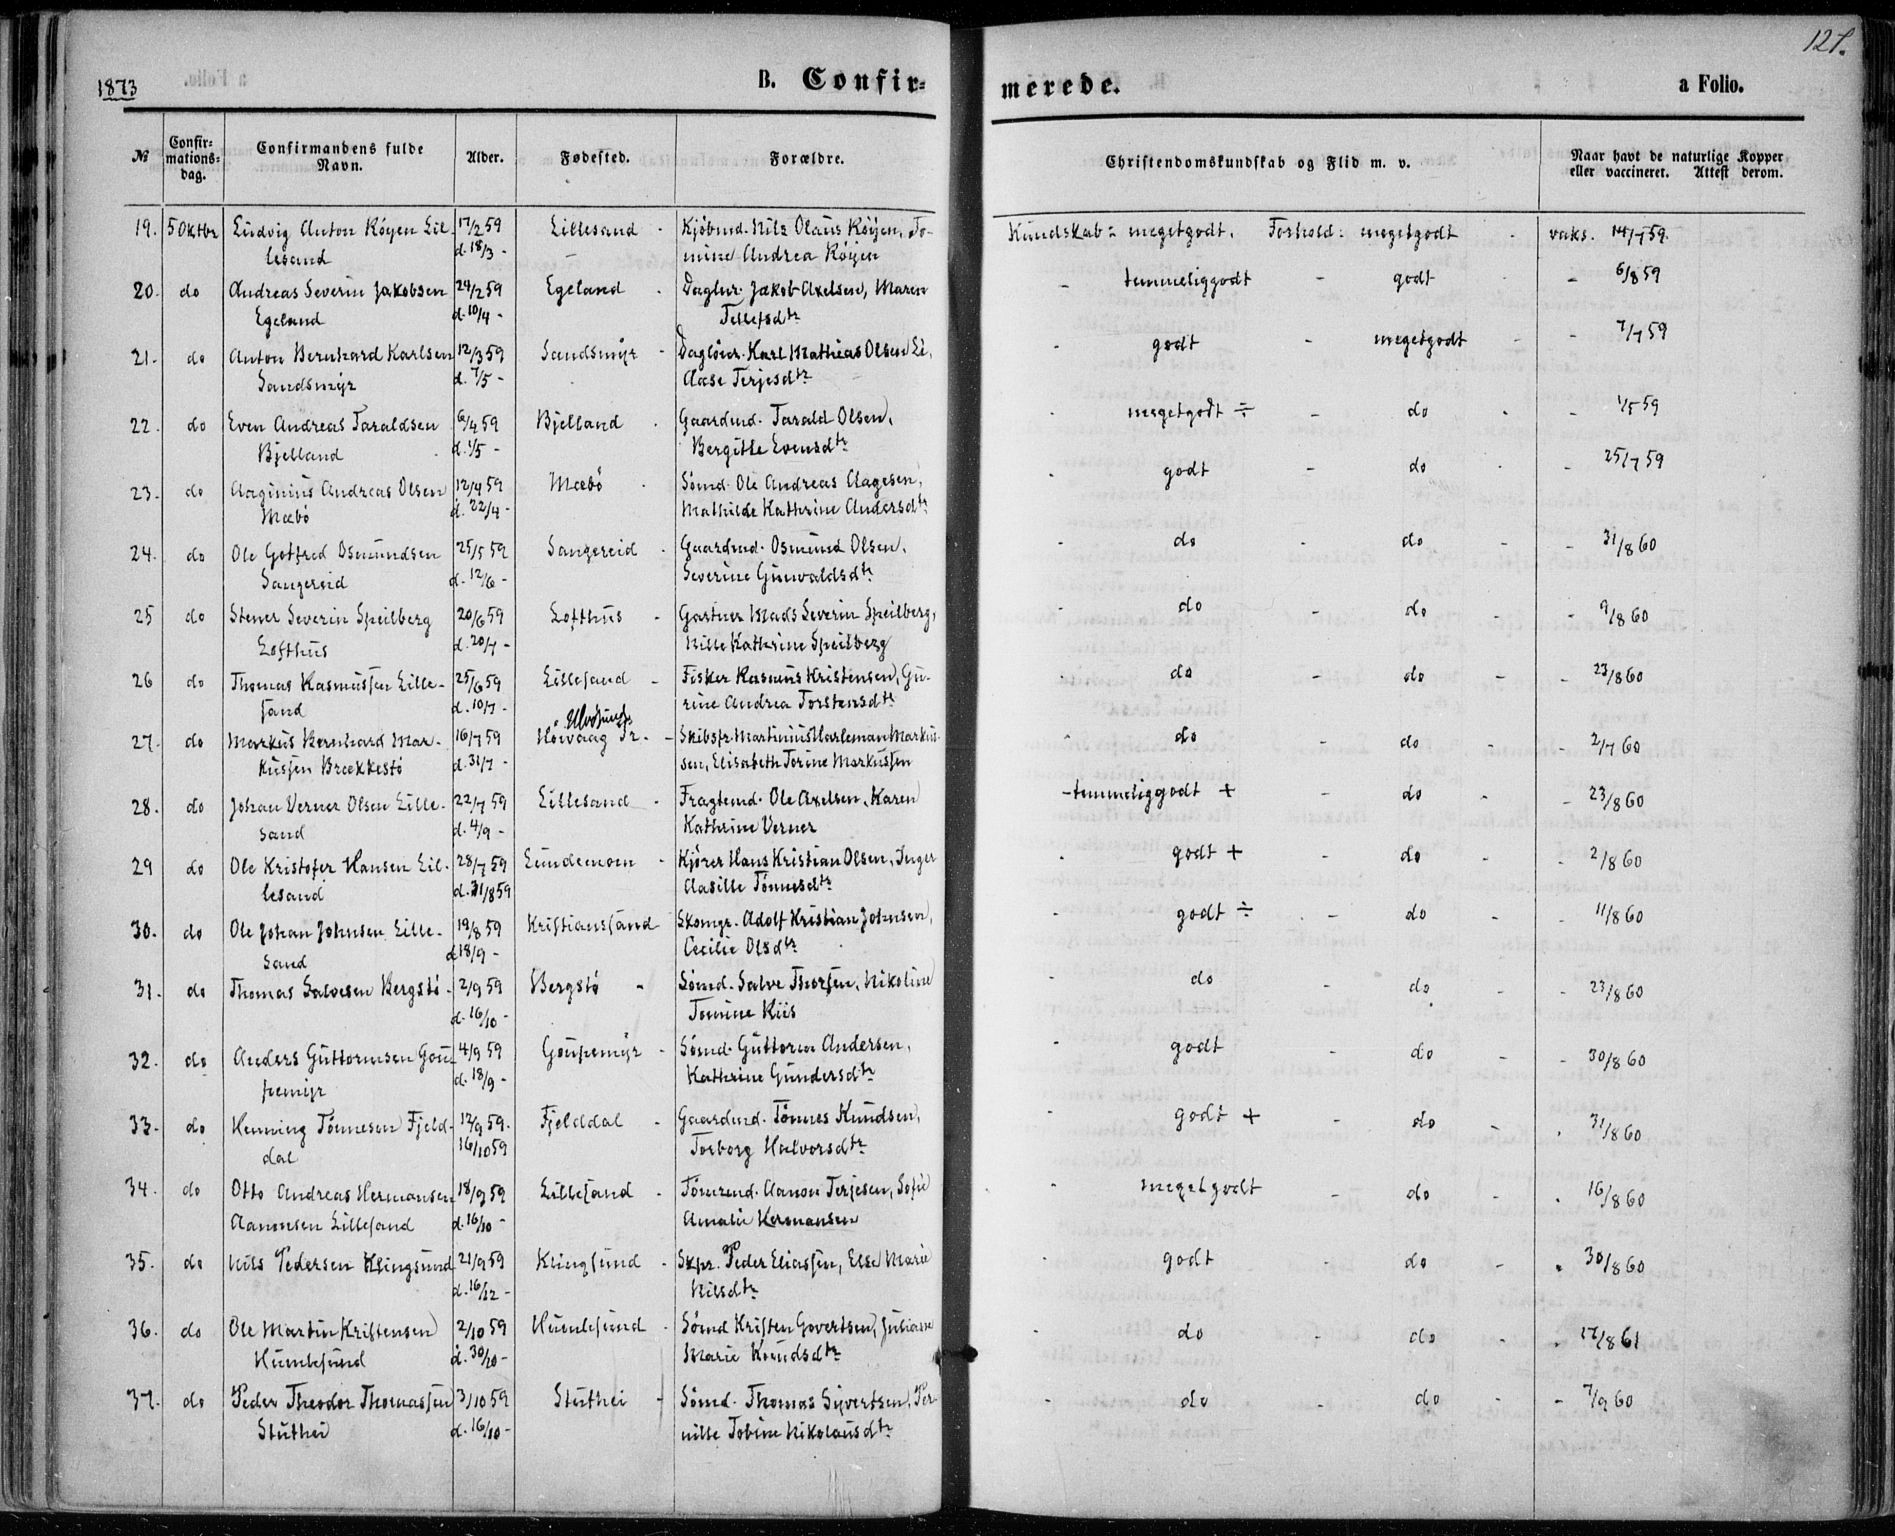 1873
B. Confir-
merede.
a Folio.
127.
№
Confir-
mations-
dag.
Confirmandens fulde
Navn.
Alder.
Fødested.
Forældre.
Christendomskundskab og Flid m. v.
Naar havt de naturlige Kopper
eller vaccineret. Attest derom.
19. 5 Oktbr Ludvig Anton Røyen Lil- 17/2 59 Lillesand - Kjøbmd. Nils Olaus Røyen, To- Kundskab: megetgodt. Forhold: megetgodt - vaks. 14/7 59.
lesand d. 18/3 - mine Andrea Røyen
20. do Andreas Severin Jakobsen 24/2 59 Egeland - Dagløнr. Jakob Axelsen, Maren - temmeliggodt - godt - 6/8 59
Egeland d. 10/4 - Tellefsdtr
21. do Anton Bernhard Karlsen 12/3 59 Sandsmyr - Dagløнr. Karl Mathias Olsen Li, - godt - megetgodt - - 7/7 59
Sandsmyr d. 7/5 - Aase Terjesdtr
22. do Even Andreas Taraldsen 6/4 59 Bjelland - Gaardmd. Tarald Olsen, - megetgodt ÷ - do - - 1/5 59
Bjelland d. 1/5 - Bergitte Evensdtr
23. do Aaginius Andreas Olsen 12/4 59 Mæbø - Sømd. Ole Andreas Aagesen, - godt - do - - 25/7 59
Mæbø d. 22/4 - Mathilde Kathrine Andersdtr
24. do Ole Gotfred Osmundsen 25/5 59 Sangereid - Gaardmd. Osmund Olsen, - do - do - - 31/8 60
Sangereid d. 12/6 - Severine Gunvaldsdtr
25 do Stener Severin Speilberg 20/6 59 Lofthus - Gartner Mads Severin Speilberg, - do - do - - 9/8 60
Lofthus d. 20/7 - Nille Kathrine Speilberg
26 do Thomas Rasmussen Lille- 25/6 59 Lillesand - Fisker Rasmus Kristensen, Gu- - do - do - - 23/8 60
sand d. 10/7 - rine Andrea Torstensdtr
Ulvøsund
27. do Markus Bernhard Mar- 16/7 59 Høivaag Pr. - Skibsfr. Martinius Harleman Markus- - do - do - - 2/7 60
kussen Brækkestø d. 31/7 - sen, Elisabeth Torine Markussen
28. do Johan Verner Olsen Lille- 22/7 59 Lillesand - Fragtemd. Ole Axelsen, Karen - temmeliggodt + - do - - 23/8 60
sand d. 4/9 - Kathrine Verner
29 do Ole Kristofer Hansen Lil- 28/7 59 Lundemoen - Kjører Hans Kristian Olsen, Inger - godt + - do - - 2/8 60
lesand d. 21/8 59 Aasille Tønnesdtr
30. do Ole Johan Johnsen Lille- 19/8 59 Kristianssand Skomgr. Adolf Kristian Johnsen, - godt ÷ - do - - 11/8 60
sand d 18/9 - Cecilie Olsdtr
31. do Thomas Salvesen Bergstø - 2/9 59 Bergstø - Sømd. Salve Thorsen, Nikoline - do - do - - 23/8 60
d. 16/10 - Tomine Kiis
32. do Anders Guttormsen Gou- 4/9 59 Goupemyr - Sømd. Guttorm Andersen, - godt - do - - 30/8 60
pemyr d. 18/9 - Kathrine Gundersdtr
33. do Henning Tønnesen Fjeld- 12/9 59. Fjelddal - Gaardmd. Tønnes Knudsen, - godt + - do - - 31/8 60
dal 16/10 59 Torborg Halvorsdtr
34. do Otto Andreas Hermansen 18/9 59 Lillesand - Tømrmd. Aanon Terjesen, Sofie - megetgodt - do - - 16/8 60
Aanonsen Lillesand d. 16/10 - Amalie Hermansen
35. do Nils Pedersen Klingsund 21/9 59 Klingsund - Skpr. Peder Eliassen, Else Marie - godt - do - - 30/8 60
d. 16/12 - Nilsdtr
36. do Ole Martin Kristensen 2/10 59 Humlesund - Sømd Kristen Govertsen, Juliane - do - do - - 17/8 61
Humlesund d. 30/10 - Marie Knudsdtr
37. do Peder Theodor Thomassen 3/10 59 Stuthei - Sømd. Thomas Syvertsen, Per- - do - do - - 7/9 60
Stuthei d. 16/10 - nille Tobine Nikolausdtr